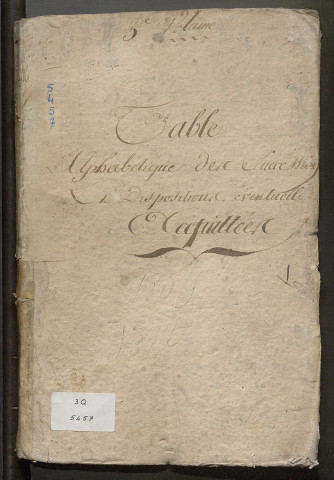 3e Volume
5457
Table
Alphabetique des Successions
& Dispositions éventuelles
Acquittées
3Q
5457